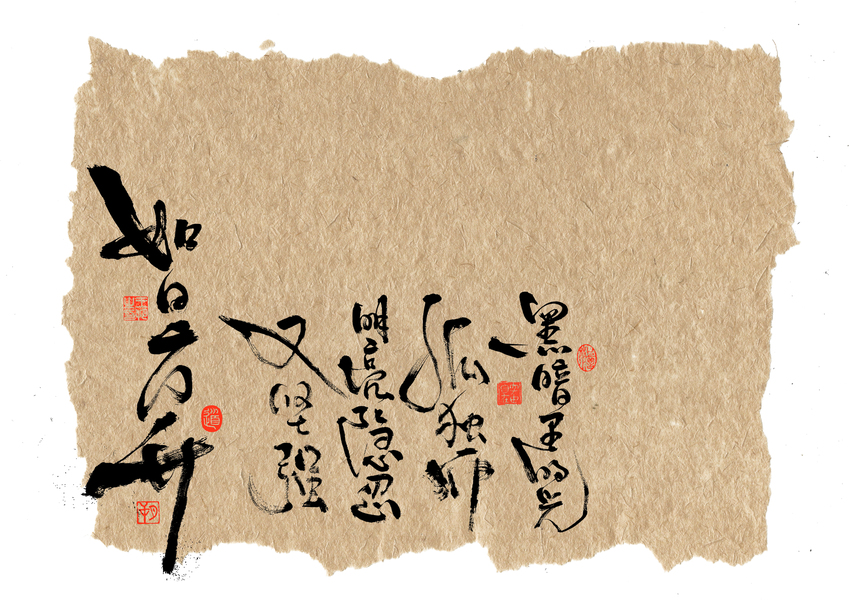 黑暗里的光
孤独而
明亮隐忍
又坚强
如日方升